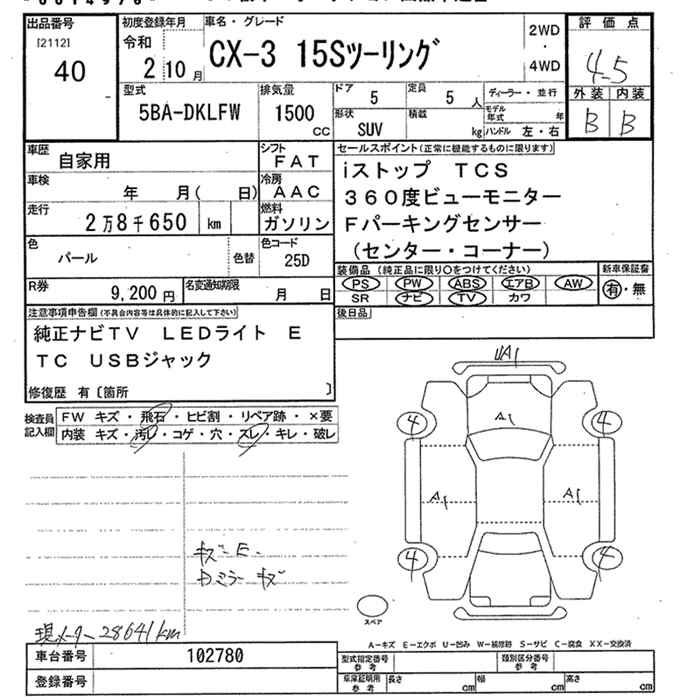 出品番号
[2112]
40
初度登録年月
令和
2 10 月
車名・グレード
CX-3 15Sツーリング
2WD
4WD
評価点
4-5
外装 内装
B B
型式
5BA-DKLFW
排気量
1500
cc
ドア
5
定員
5 人
形状
SUV
積載
kg
ディーラー・並行
モデル年式 年
ハンドル 左・右
車歴
自家用
シフト
FAT
車検
年 月( 日)
冷房
AAC
走行
2万8千650 km
燃料
ガソリン
色
パール
色替
色コード
25D
R券
9,200円
名変通知期限
月 日
セールスポイント(正常に機能するものに限ります)
iストップ TCS
360度ビューモニター
Fパーキングセンサー
(センター・コーナー)
装備品(純正品に限り○をつけてください)
新車保証書
PS PW ABS エアB AW
SR ナビ TV カワ
有・無
後日品
注意事項申告欄(不具合内容等は具体的に記入して下さい)
純正ナビTV LEDライト E
TC USBジャック
修復歴 有〔箇所 〕
検査員記入欄
FW キズ・飛石・ヒビ割・リペア跡・×要
内装 キズ・汚レ・コゲ・穴・スレ・キレ・破レ
UA1
4 A1 4
A1 A1
4 4
スペア
キズ E.
Dミラーキズ
現メーター28641km
A-キズ E-エクボ U-凹み W-補修跡 S-サビ C-腐食 XX-交換済
車台番号
102780
登録番号
型式指定番号
参考
類別区分番号
参考
車庫証明用
参考
長さ cm
幅 cm
高さ cm